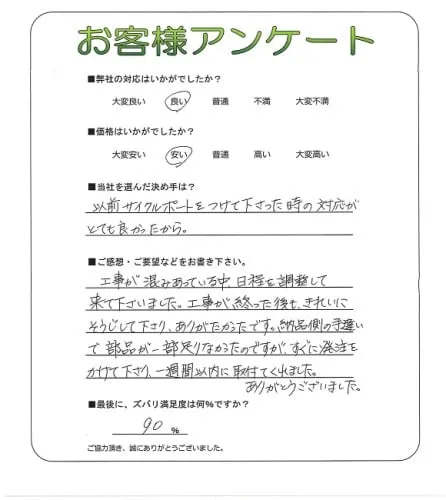 お客様アンケート
■弊社の対応はいかがでしたか？
大変良い 良い 普通 不満 大変不満
■価格はいかがでしたか？
大変安い 安い 普通 高い 大変高い
■当社を選んだ決め手は？
以前サイクルポートをつけて下さった時の対応が
とても良かったから。
■ご感想・ご要望などをお書き下さい。
工事が混みあっている中、日程を調整して
来て下さいました。工事が終った後も、きれいに
そうじして下さり、ありがたかったです。納品側の手違い
で部品が一部足りなかったのですが、すぐに発注を
かけて下さり、一週間以内に取付てくれました。
ありがとうございました。
■最後に、ズバリ満足度は何%ですか？
90 %
ご協力頂き、誠にありがとうございました。